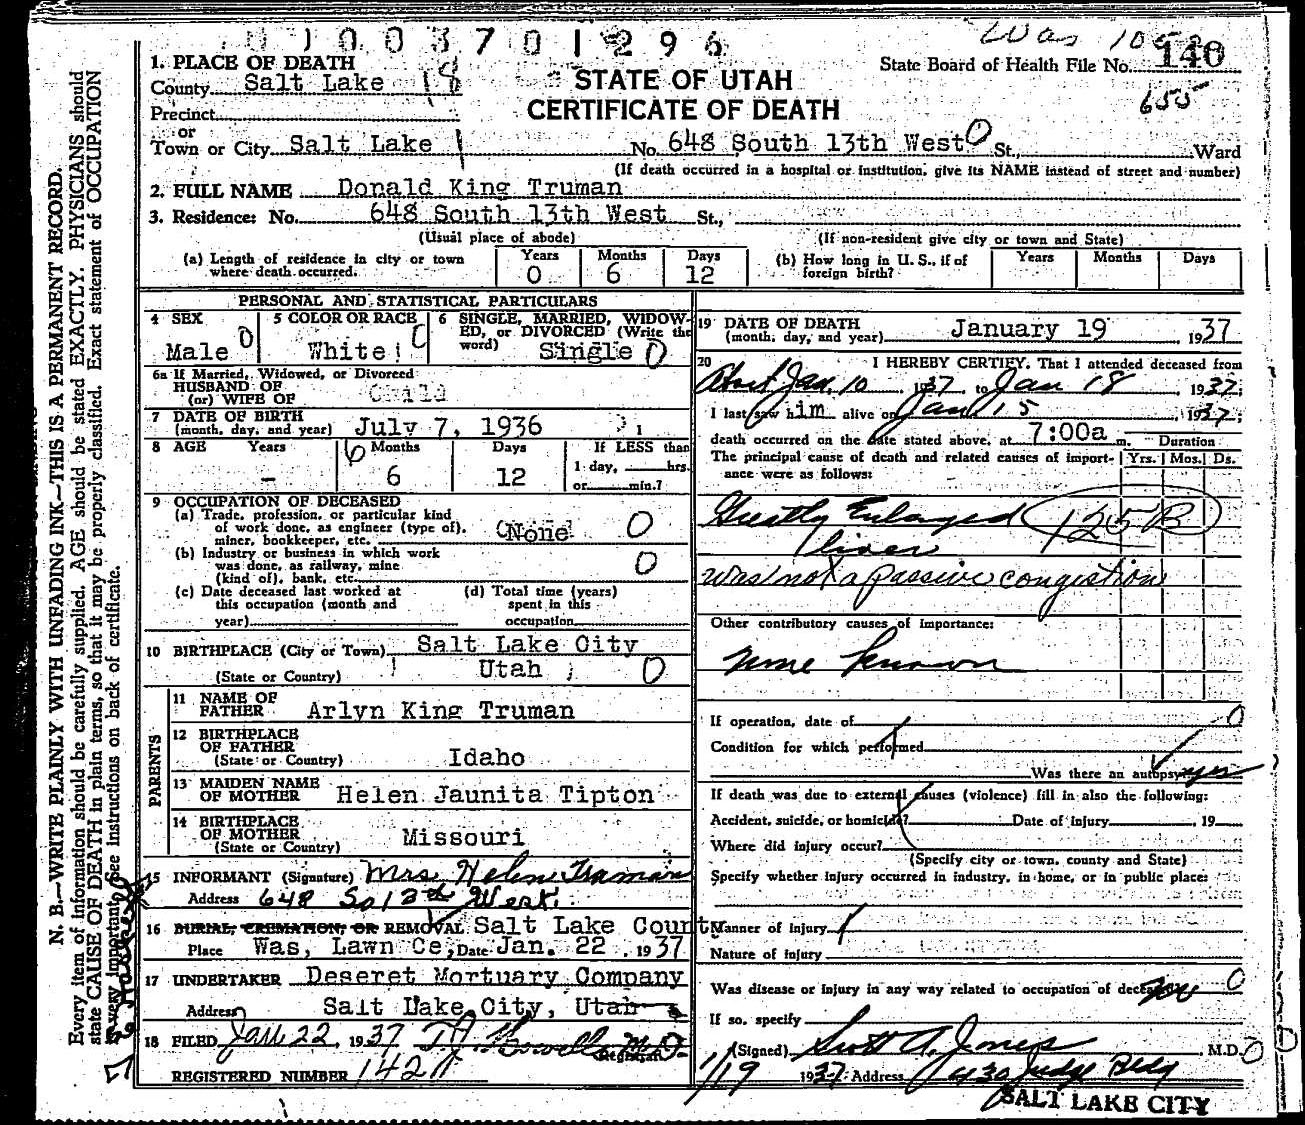 0 1 0 0 3 7 0 1 2 9 6
Was
STATE OF UTAH
CERTIFICATE OF DEATH
State Board of Health File No. 140
655
1. PLACE OF DEATH
County Salt Lake 18
Precinct
or
Town or City Salt Lake No. 648 South 13th West 0 St., Ward
(If death occurred in a hospital or institution, give its NAME instead of street and number)
2. FULL NAME Donald King Truman
3. Residence: No. 648 South 13th West St.,
(Usual place of abode) (If non-resident give city or town and State)
(a) Length of residence in city or town where death occurred. Years 0 Months 6 Days 12
(b) How long in U. S., if of foreign birth? Years Months Days
PERSONAL AND STATISTICAL PARTICULARS
4 SEX Male 0
5 COLOR OR RACE White
6 SINGLE, MARRIED, WIDOWED, or DIVORCED (Write the word) Single 0
6a If Married, Widowed, or Divorced
HUSBAND OF
(or) WIFE OF Child
7 DATE OF BIRTH
(month, day, and year) July 7, 1936
8 AGE Years - Months 6 Days 12 If LESS than
1 day, hrs.
or min.?
9 OCCUPATION OF DECEASED
(a) Trade, profession, or particular kind
of work done, as engineer (type of), None 0
miner, bookkeeper, etc.
(b) Industry or business in which work
was done, as railway, mine 0
(kind of), bank, etc.
(c) Date deceased last worked at
this occupation (month and
year)
(d) Total time (years)
spent in this
occupation
10 BIRTHPLACE (City or Town) Salt Lake City
(State or Country) Utah 0
PARENTS
11 NAME OF
FATHER Arlyn King Truman
12 BIRTHPLACE
OF FATHER
(State or Country) Idaho
13 MAIDEN NAME
OF MOTHER Helen Jaunita Tipton
14 BIRTHPLACE
OF MOTHER
(State or Country) Missouri
15 INFORMANT (Signature) Mrs. Helen Truman
Address 648 So 13th West.
16 BURIAL, CREMATION, OR REMOVAL Salt Lake County
Place Was, Lawn Ce, Date Jan. 22, 1937
17 UNDERTAKER Deseret Mortuary Company
Address Salt Lake City, Utah
18 FILED Jan 22, 1937 M.D.
Registrar
REGISTERED NUMBER 142
19 DATE OF DEATH
(month, day, and year) January 19 1937
20 I HEREBY CERTIFY, That I attended deceased from
About Jan. 10 1937 to Jan 18 1937;
I last saw him alive on Jan 15 1937;
death occurred on the date stated above, at 7:00a m. Duration
The principal cause of death and related causes of importance were as follows: Yrs. Mos. Ds.
Greatly Enlarged 125B
liver
was not a passive congestion
Other contributory causes of importance:
none known
If operation, date of 0
Condition for which performed
Was there an autopsy yes
If death was due to external causes (violence) fill in also the following:
Accident, suicide, or homicide? Date of injury , 19
Where did injury occur?
(Specify city or town, county and State)
Specify whether injury occurred in industry, in home, or in public place:
Manner of injury
Nature of injury
Was disease or injury in any way related to occupation of deceased no 0
If so, specify
(Signed) Scott A. Jones, M.D.
1/19 1937 Address 430 Judge Bldg
SALT LAKE CITY
N. B.—WRITE PLAINLY WITH UNFADING INK—THIS IS A PERMANENT RECORD.
Every item of information should be carefully supplied. AGE should be stated EXACTLY. PHYSICIANS should
state CAUSE OF DEATH in plain terms, so that it may be properly classified. Exact statement of OCCUPATION
is very important. See instructions on back of certificate.